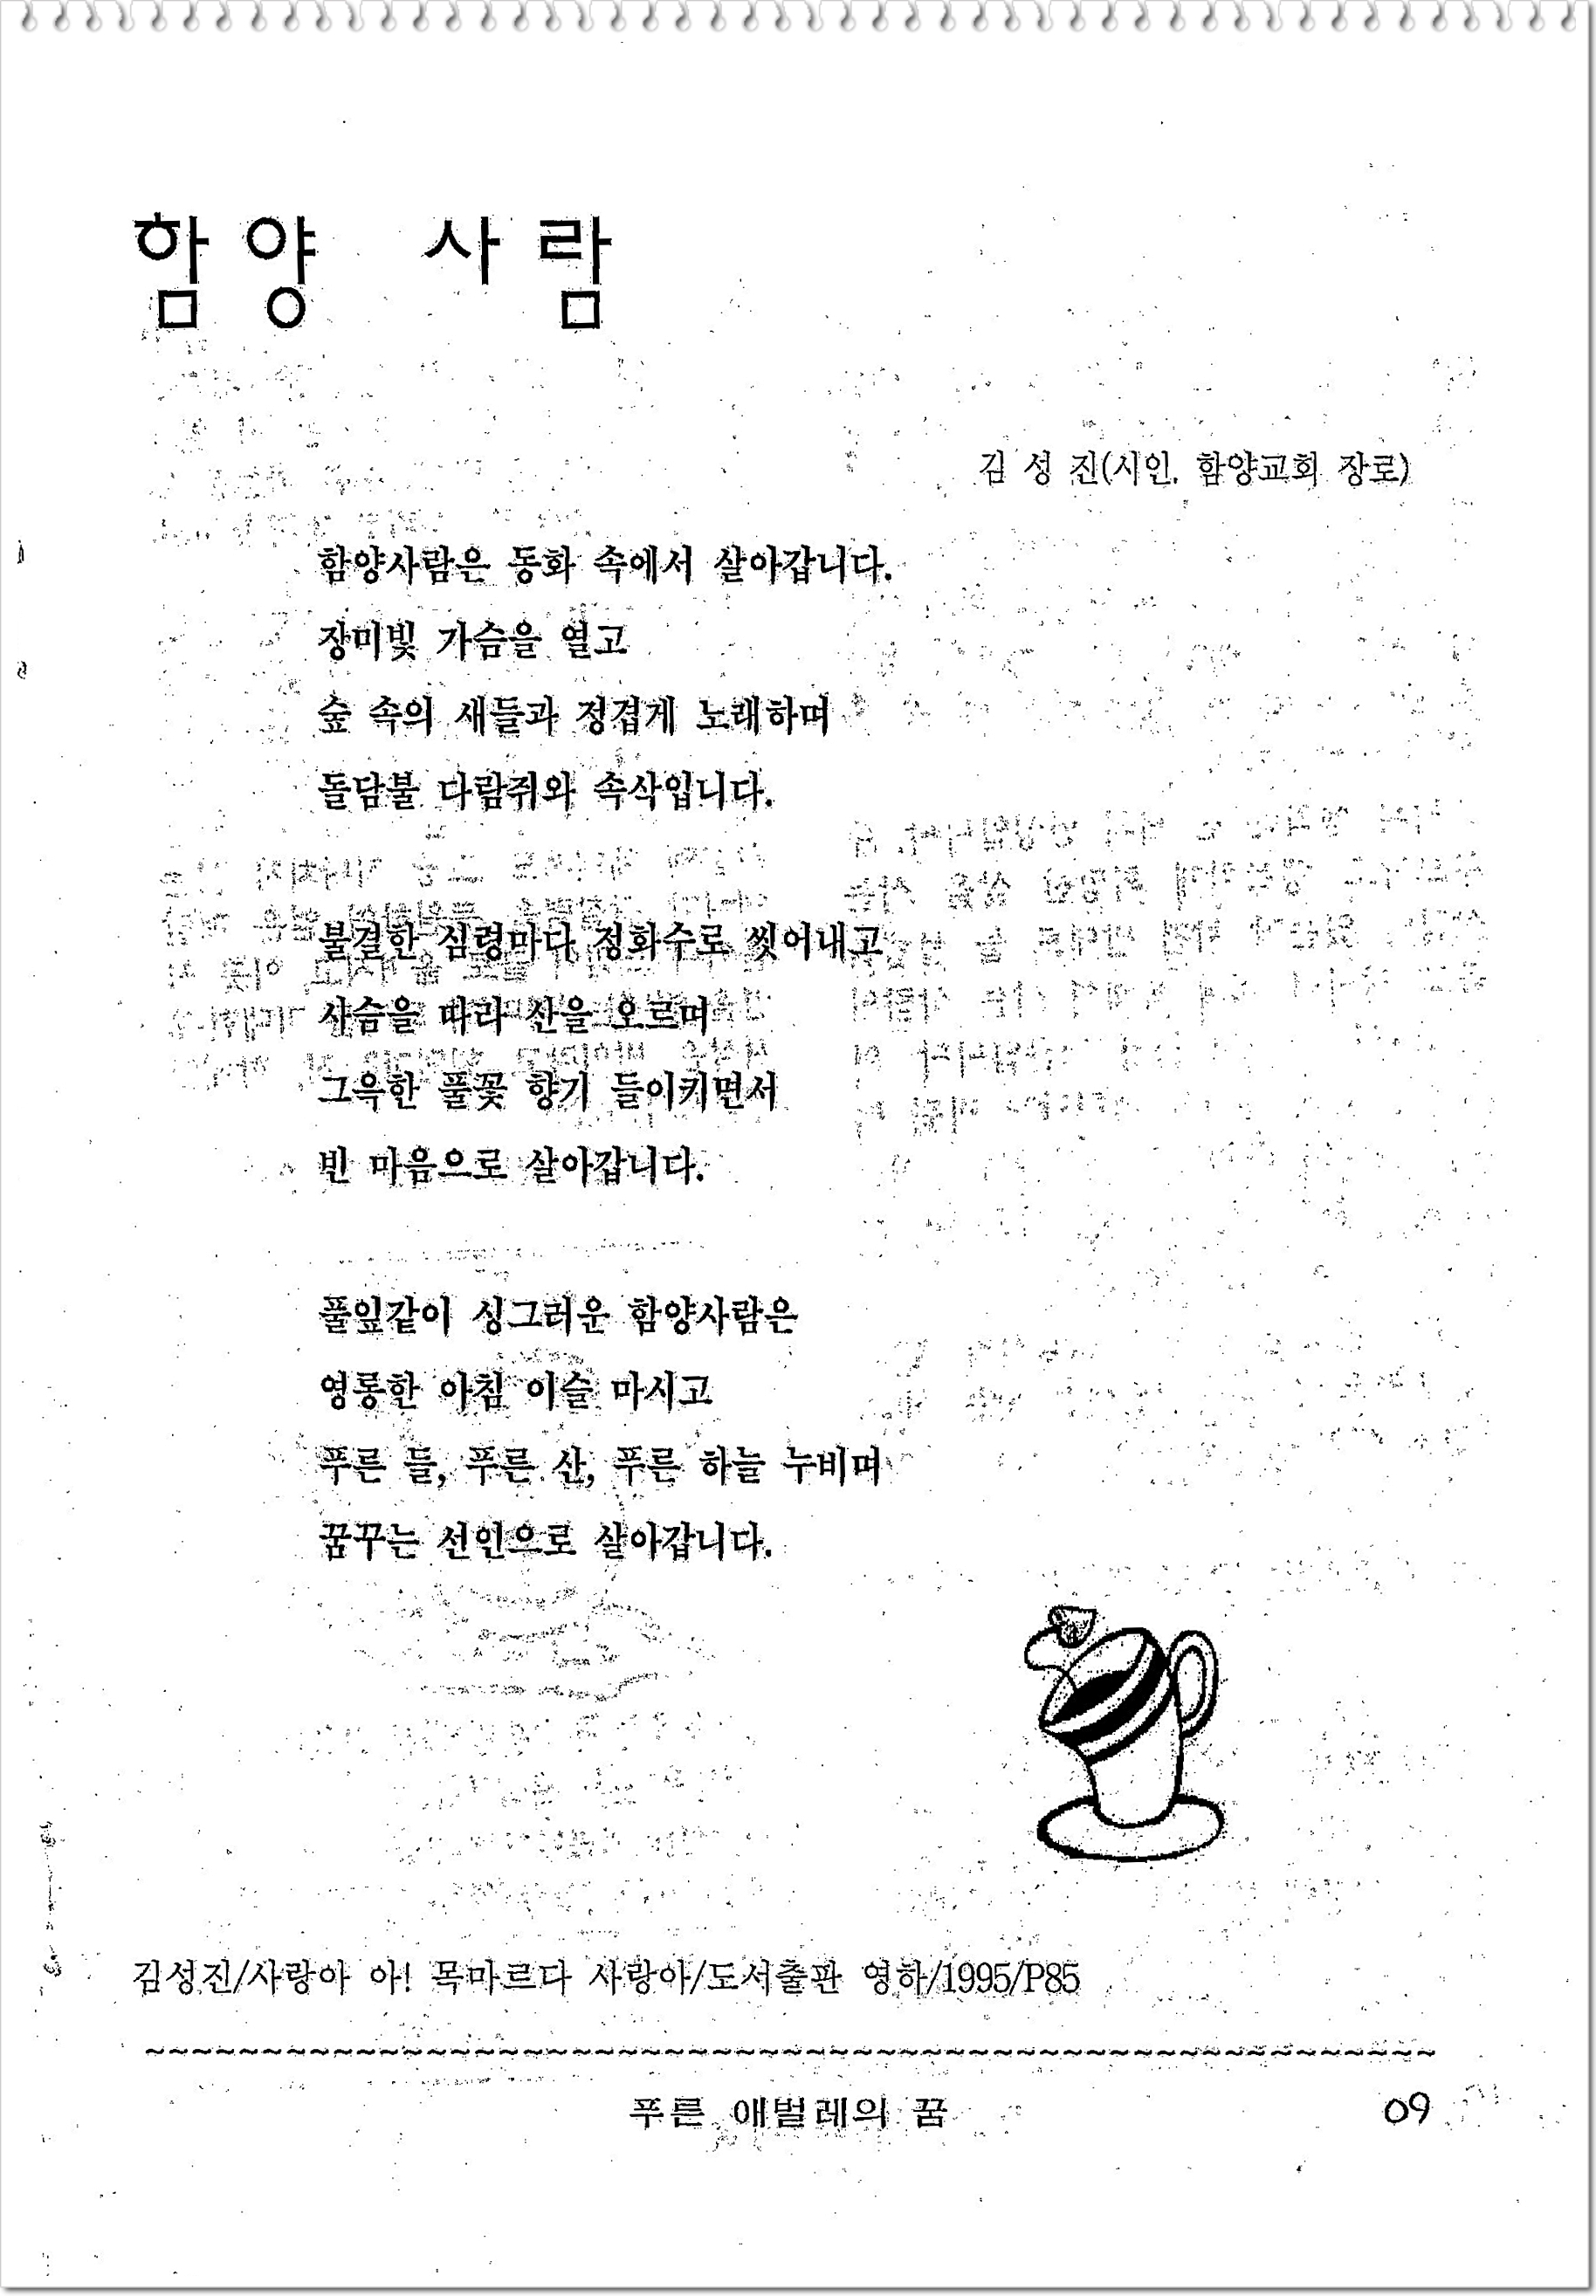 함양 사람
김 성 진(시인, 함양교회 장로)
함양사람은 동화 속에서 살아갑니다.
장미빛 가슴을 열고
숲 속의 새들과 정겹게 노래하며
돌담불 다람쥐와 속삭입니다.
불결한 심령마다 정화수로 씻어내고
사슴을 따라 산을 오르며
그윽한 풀꽃 향기 들이키면서
빈 마음으로 살아갑니다.
풀잎같이 싱그러운 함양사람은
영롱한 아침 이슬 마시고
푸른 들, 푸른 산, 푸른 하늘 누비며
꿈꾸는 선인으로 살아갑니다.
김성진/사랑아 아! 목마르다 사랑아/도서출판 영하/1995/P85
푸른 애벌레의 꿈
09